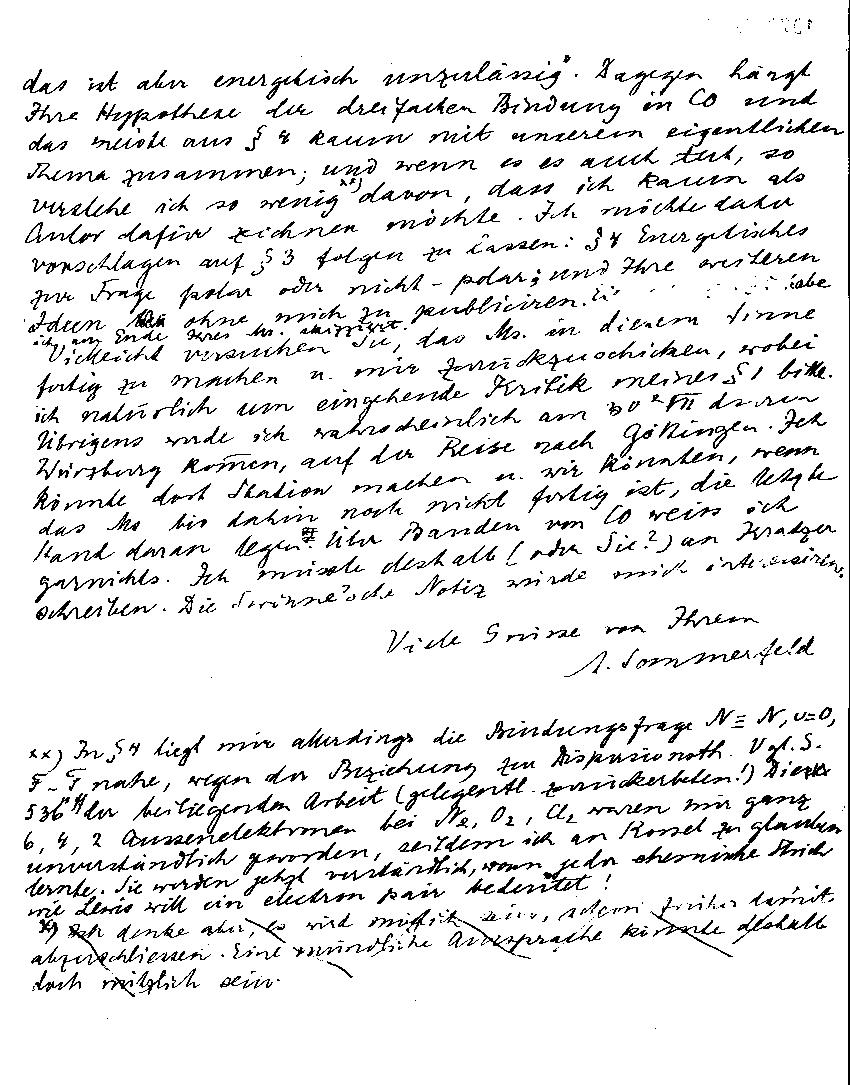 das ist aber energetisch unzulässig". Dagegen hängt
Ihre Hypothese der dreifachen Bindung in CO und
das meiste aus § 4 kaum mit unserem eigentlichen
Thema zusammen; und wenn es es auch tut, so
verstehe ich so wenig xx) davon, dass ich kaum als
Autor dafür zeichnen möchte. Ich möchte daher
vorschlagen auf § 3 folgen zu lassen: § 4 Energetisches
zur Frage polar oder nicht-polar; und Ihre weiteren
Ideen ohne mich zu publiciren. habe
ich am Ende Ihres Ms. skizziert.
Vielleicht versuchen Sie, das Ms. in diesem Sinne
fertig zu machen u. mir zurückzuschicken, wobei
ich natürlich um eingehende Kritik meines § 1 bitte.
Übrigens werde ich wahrscheinlich am 30 VII durch
Würzburg kommen, auf der Reise nach Göttingen. Ich
könnte dort Station machen u. wir könnten, wenn
das Ms bis dahin noch nicht fertig ist, die letzte
Hand daran legen. Über Banden von CO weiss ich
garnichts. Ich müsste deshalb (oder Sie?) an Kratzer
schreiben. Die Notiz würde mich interessiren.
Viele Grüsse von Ihrem
A. Sommerfeld
xx) In § 4 liegt mir allerdings die Bindungsfrage N ≡ N, O=O,
F–F nahe, wegen der Beziehung zur Dispersionsth. Vgl. S.
536 der beiliegenden Arbeit (gelegentl. zurückerbeten!) Die
6, 4, 2 Aussenelektronen bei N₂, O₂, Cl₂ waren mir ganz
unverständlich geworden, seitdem ich an Kossel zu glauben
lernte. Sie werden jetzt verständlich, wenn jeder chemische Strich
wie Lewis will ein electron pair bedeutet!
x) Ich denke aber, es wird möglich sein, schon früher damit
abzuschliessen. Eine mündliche Aussprache könnte deshalb
doch nützlich sein.